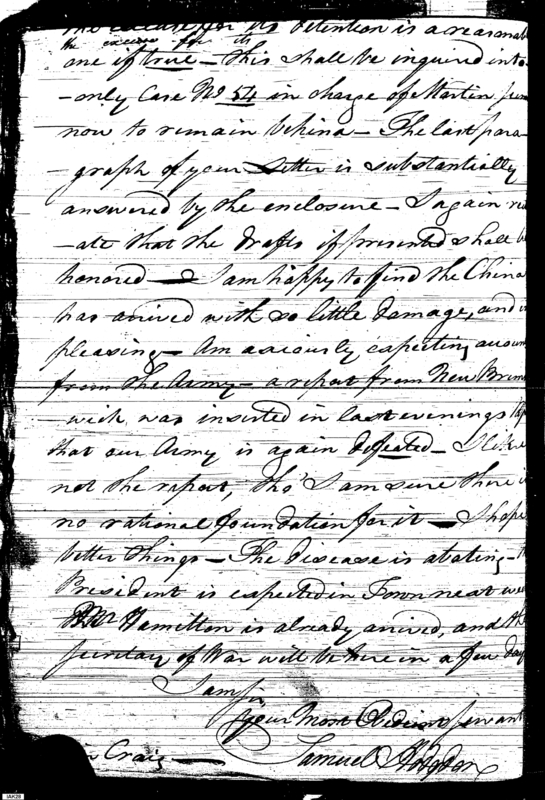 the excuse for its detention is a reasonab
the excuse for its
one if true — this shall be inquired into
— only Case No 54 in charge of Martin
now to remain behind — The last para
— graph of your Letter is substantially
answered by the enclosure — I again
— ate that the drafts if presented shall b
honored — I am happy to find the China
has arived with so little damage, and
pleasing — Am axiously expecting accoun
from the Army — a report from New Brun
— wick was inserted in last evenings
that our Army is again defeated — I like
not the report, tho' I am sure there i
no rational foundation for it — I hope
better things — The disease is abating —
President is expected in Town next wee
Mr Hamilton is already arived, and th
Secretary of War will be here in a few day
I am Sir
Your Most Obedient Servant
Samuel Hodgdon
Craig —
IAK28